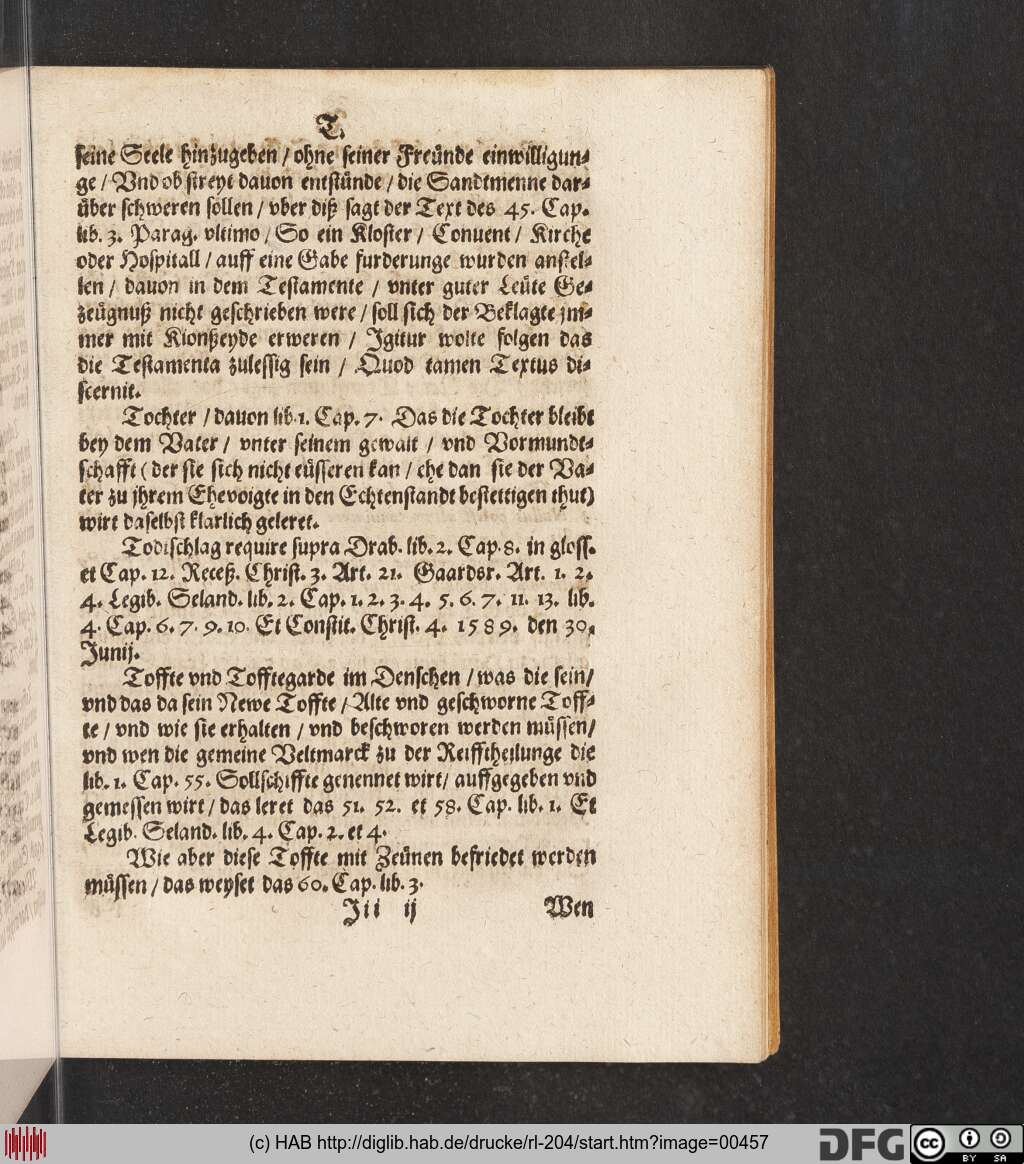 T.
seine Seele hinzugeben / ohne seiner Freünde einwilligun⸗
ge / Vnd ob streyt dauon entstünde / die Sandtmenne dar⸗
über schweren sollen / vber diß sagt der Text des 45. Cap.
lib. 3. Parag. vltimo / So ein Kloster / Conuent / Kirche
oder Hospitall / auff eine Gabe furderunge wurden anstel⸗
len / dauon in dem Testamente / vnter guter Leüte Ge⸗
zeügnuß nicht geschrieben were / soll sich der Beklagte jm⸗
mer mit Kionßeyde erweren / Igitur wolte folgen das
die Testamenta zulessig sein / Quod tamen Textus di⸗
scernit.
Tochter / dauon lib. 1. Cap. 7. Das die Tochter bleibt
bey dem Vater / vnter seinem gewalt / vnd Vormundt⸗
schafft (der sie sich nicht eüsseren kan / ehe dan sie der Va⸗
ter zu jhrem Ehevoigte in den Echtenstandt bestettigen thut)
wirt daselbst klarlich geleret.
Todtschlag require supra Drab. lib. 2. Cap. 8. in gloss.
et Cap. 12. Receß. Christ. 3. Art. 21. Gaardsr. Art. 1. 2.
4. Legib. Seland. lib. 2. Cap. 1. 2. 3. 4. 5. 6. 7. 11. 13. lib.
4. Cap. 6. 7. 9. 10. Et Constit. Christ. 4. 1589. den 30.
Junij.
Toffte vnd Tofftegarde im Denschen / was die sein /
vnd das da sein Newe Toffte / Alte vnd geschworne Toff⸗
te / vnd wie sie erhalten / vnd beschworen werden müssen /
vnd wen die gemeine Veltmarck zu der Reifftheilunge die
lib. 1. Cap. 55. Sollschiffte genennet wirt / auffgegeben vnd
gemessen wirt / das leret das 51. 52. et 58. Cap. lib. 1. Et
Legib. Seland. lib. 4. Cap. 2. et 4.
Wie aber diese Toffte mit Zeünen befriedet werden
müssen / das weyset das 60. Cap. lib. 3.
Iii ij Wen
(c) HAB http://diglib.hab.de/drucke/rl-204/start.htm?image=00457
DFG cc BY SA